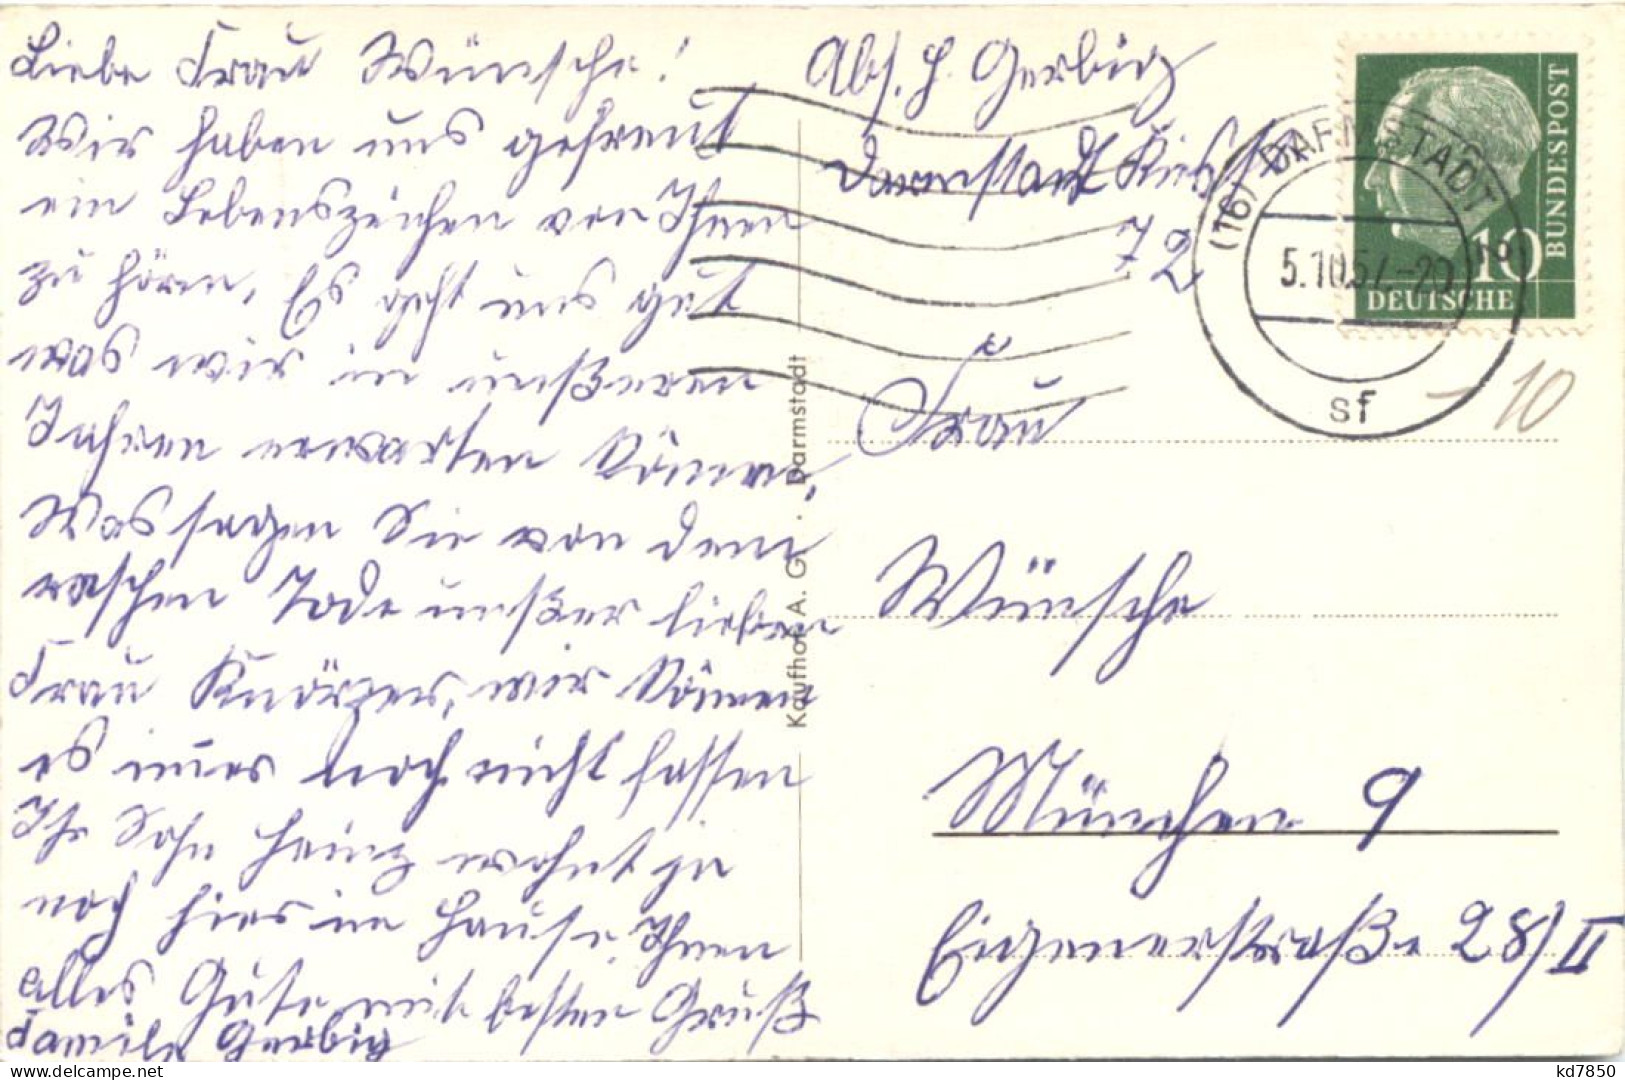 Liebe Frau Wünsche!
Wir haben uns gefreut
ein Lebenszeichen von Ihnen
zu hören, Es geht uns gut
was wir in unßeren
Jahren erwarten können,
Was sagen Sie von dem
raschen Tode unßer lieben
Frau Knörzer, wir können
es noch nicht fassen
Ihr Sohn Heinz wohnt ja
noch hier im Hause, Ihnen
alles Gute mit besten Gruß
Familie Gerbig
Abs. H. Gerbig
Darmstadt
72
(16) DARMSTADT 2
5.10.57.-20
sf
DEUTSCHE
BUNDESPOST
10
- 10
Kaufhof A. G. · Darmstadt
Frau
Wünsche
München 9
Eigenerstraße 28/II
kd7850